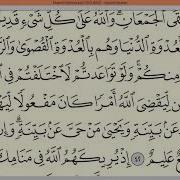 قَى ٱلْجَمْعَانِ وَٱللَّهُ عَلَىٰ كُلِّ شَىْءٍ قَدِيـ
ـلْعُدْوَةِ ٱلدُّنْيَا وَهُم بِٱلْعُدْوَةِ ٱلْقُصْوَىٰ وَٱلرَّ
مِنكُمْ وَلَوْ تَوَاعَدتُّمْ لَٱخْتَلَفْتُمْ فِى
ـن لِّيَقْضِىَ ٱللَّهُ أَمْرًا كَانَ مَفْعُولًا لِّيَهْـ
عَنۢ بَيِّنَةٍ وَيَحْيَىٰ مَنْ حَىَّ عَنۢ بَيِّنَةٍ وَ
عَلِيمٌ ٤٢ إِذْ يُرِيكَهُمُ ٱللَّهُ فِى مَنَامِـ